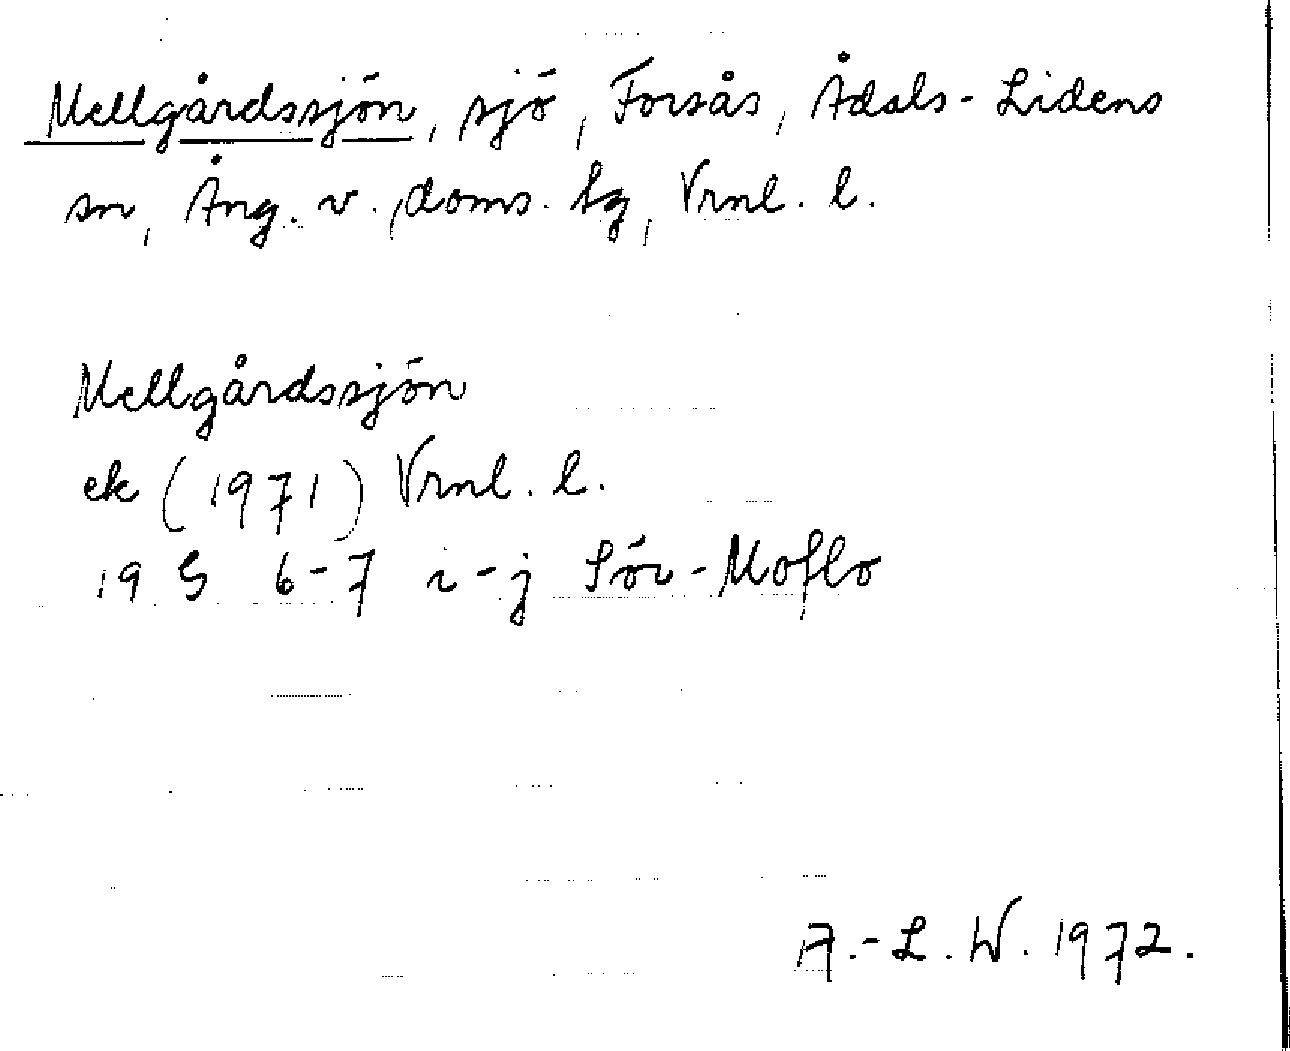 Mellgårdssjön, sjö, Forsås, Ådals-Lidens
sn, Ång. v. doms. tg, Vrnl. l.
Mellgårdssjön
ek (1971) Vrnl. l.
19 G 6-7 i-j Sör-Moflo
A.-L. W. 1972.